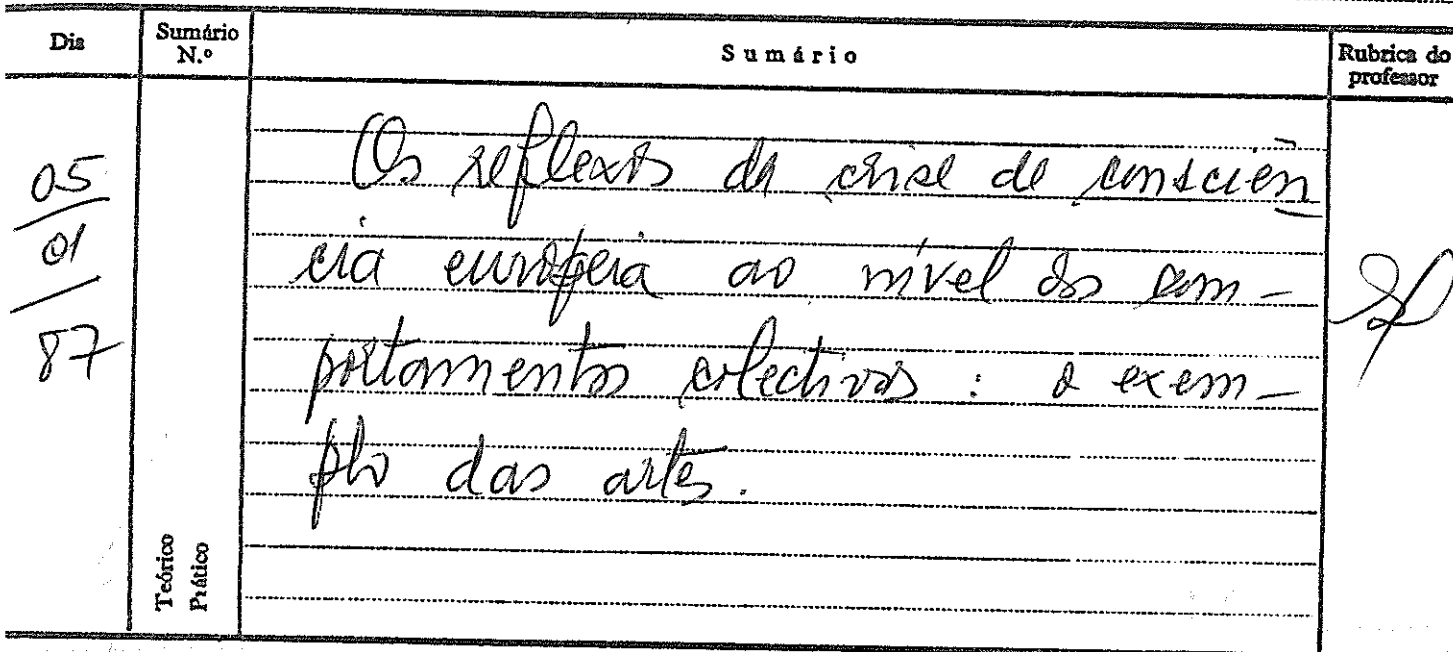 Dia
Sumário N.º
Sumário
Rubrica do professor
05
01
87
Os reflexos da crise de consciên
cia europeia ao nível dos com-
portamentos colectivos : o exem-
plo das artes.
Teórico
Prático